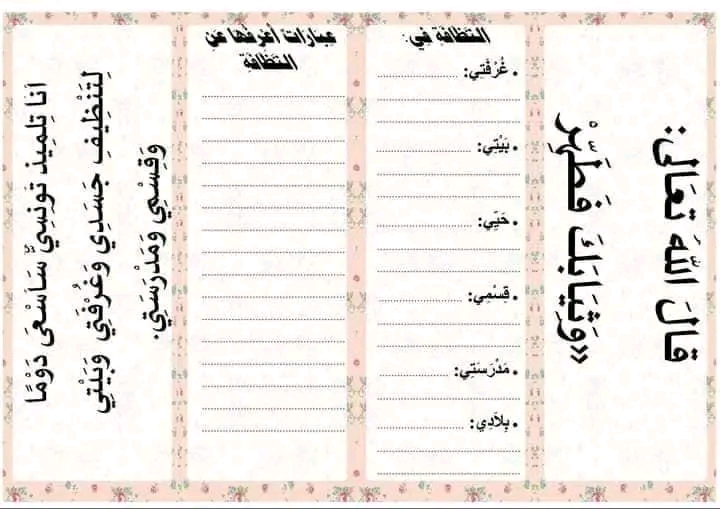 قَالَ اللَّهُ تَعَالَى:
«وَثِيَابَكَ فَطَهِّرْ»
النظافة في:
• غُرْفَتِي:
• بَيْتِي:
• حَيِّي:
• قِسْمِي:
• مَدْرَسَتِي:
• بِلَادِي:
عبارات أعرفها عن
النظافة
أنا تِلْمِيذ تونِسِيٌّ سَأَسْعَى دَوْمًا
لِتَنْظِيفِ جَسَدِي وَغُرْفَتِي وَبَيْتِي
وَقِسْمِي وَمَدْرَسَتِي.